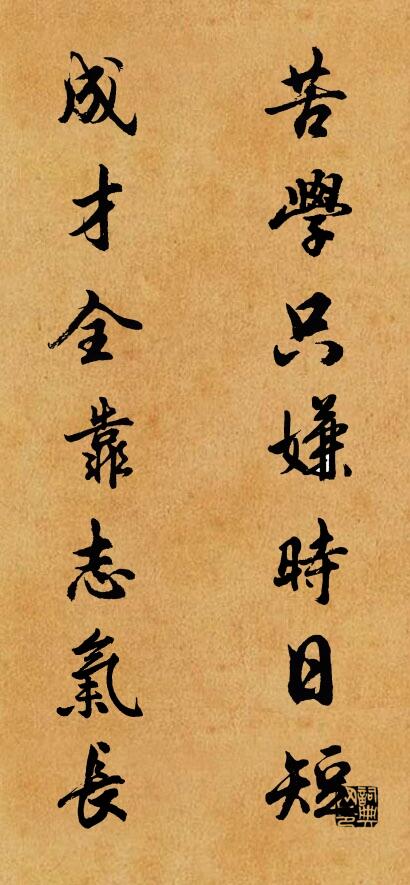 苦學只嫌時日短
成才全靠志氣長